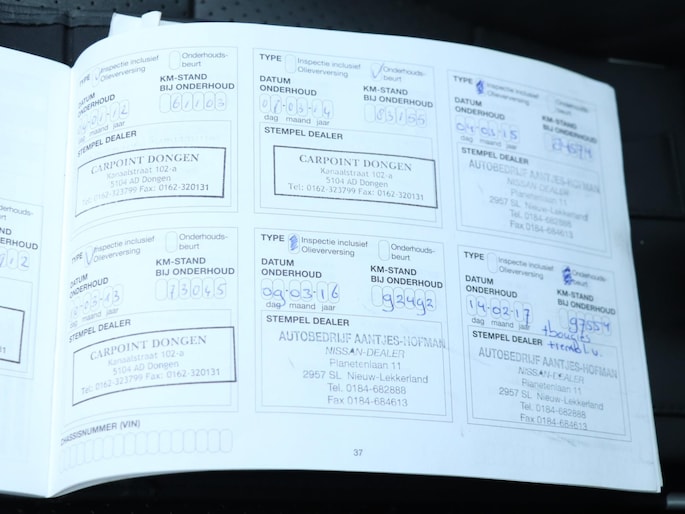 TYPE Inspectie inclusief Olieverversing Onderhouds-beurt
DATUM ONDERHOUD KM-STAND BIJ ONDERHOUD
-01-12 61103
dag maand jaar
STEMPEL DEALER
CARPOINT DONGEN
Kanaalstraat 102-a
5104 AD Dongen
Tel: 0162-323799 Fax: 0162-320131
TYPE Inspectie inclusief Olieverversing Onderhouds-beurt
DATUM ONDERHOUD KM-STAND BIJ ONDERHOUD
-03-13 73045
dag maand jaar
STEMPEL DEALER
CARPOINT DONGEN
Kanaalstraat 102-a
5104 AD Dongen
Tel: 0162-323799 Fax: 0162-320131
CHASSISNUMMER (VIN)
TYPE Inspectie inclusief Olieverversing Onderhouds-beurt
DATUM ONDERHOUD KM-STAND BIJ ONDERHOUD
-03-14 83155
dag maand jaar
STEMPEL DEALER
CARPOINT DONGEN
Kanaalstraat 102-a
5104 AD Dongen
Tel: 0162-323799 Fax: 0162-320131
TYPE Inspectie inclusief Olieverversing Onderhouds-beurt
DATUM ONDERHOUD KM-STAND BIJ ONDERHOUD
09-03-16 92492
dag maand jaar
STEMPEL DEALER
AUTOBEDRIJF AANTJES-HOFMAN
NISSAN-DEALER
Planetenlaan 11
2957 SL Nieuw-Lekkerland
Tel. 0184-682888
Fax 0184-684613
37
TYPE Inspectie inclusief Olieverversing Onderhouds-beurt
DATUM ONDERHOUD KM-STAND BIJ ONDERHOUD
04-03-15
dag maand jaar
STEMPEL DEALER
AUTOBEDRIJF AANTJES-HOFMAN
NISSAN-DEALER
Planetenlaan 11
2957 SL Nieuw-Lekkerland
Tel. 0184-682888
Fax 0184-684613
TYPE Inspectie inclusief Olieverversing Onderhouds-beurt
DATUM ONDERHOUD KM-STAND BIJ ONDERHOUD
14-02-17 97554
dag maand jaar
+bougies
STEMPEL DEALER
AUTOBEDRIJF AANTJES-HOFMAN
NISSAN-DEALER
Planetenlaan 11
2957 SL Nieuw-Lekkerland
Tel. 0184-682888
Fax 0184-684613